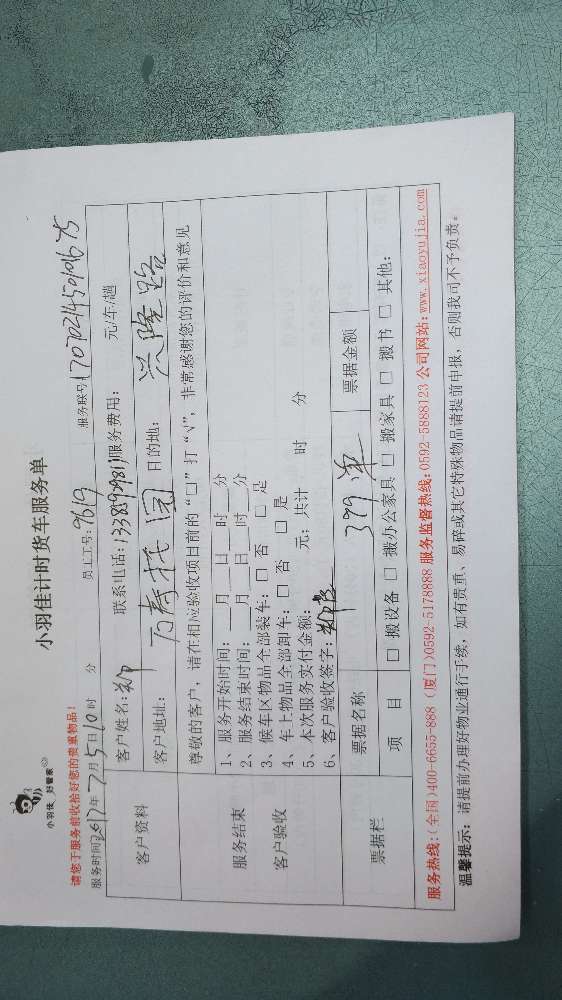 小羽佳 好管家
小羽佳计时货车服务单
请您于服务前收拾好您的贵重物品!
服务时间2017年7月5日10时 分 员工工号:9619 服务联号:
客户资料
客户姓名: 联系电话: 服务费用: 元/车/趟
客户地址: 万寿托团 目的地: 兴隆路
尊敬的客户, 请在相应验收项目前的“□”打“√”, 非常感谢您的评价和意见
服务结束
客户验收
1、服务开始时间:___月___日___时___分
2、服务结束时间:___月___日___时___分
3、候车区物品全部装车: □ 否 □ 是
4、车上物品全部卸车: □ 否 □ 是
5、本次服务实付金额: 元; 共计 时 分
6、客户验收签字:
票据栏
票据名称 399 票据金额
项 目 □ 搬设备 □ 搬办公家具 □ 搬家具 □ 搬书 □ 其他:
服务热线: (全国)400-6655-888 (厦门)0592-5178888 服务监督热线: 0592-5888123 公司网站: www.xiaoyujia.com
温馨提示: 请提前办理好物业通行手续, 如有贵重、易碎或其它特殊物品请提前申报, 否则我司不予负责。